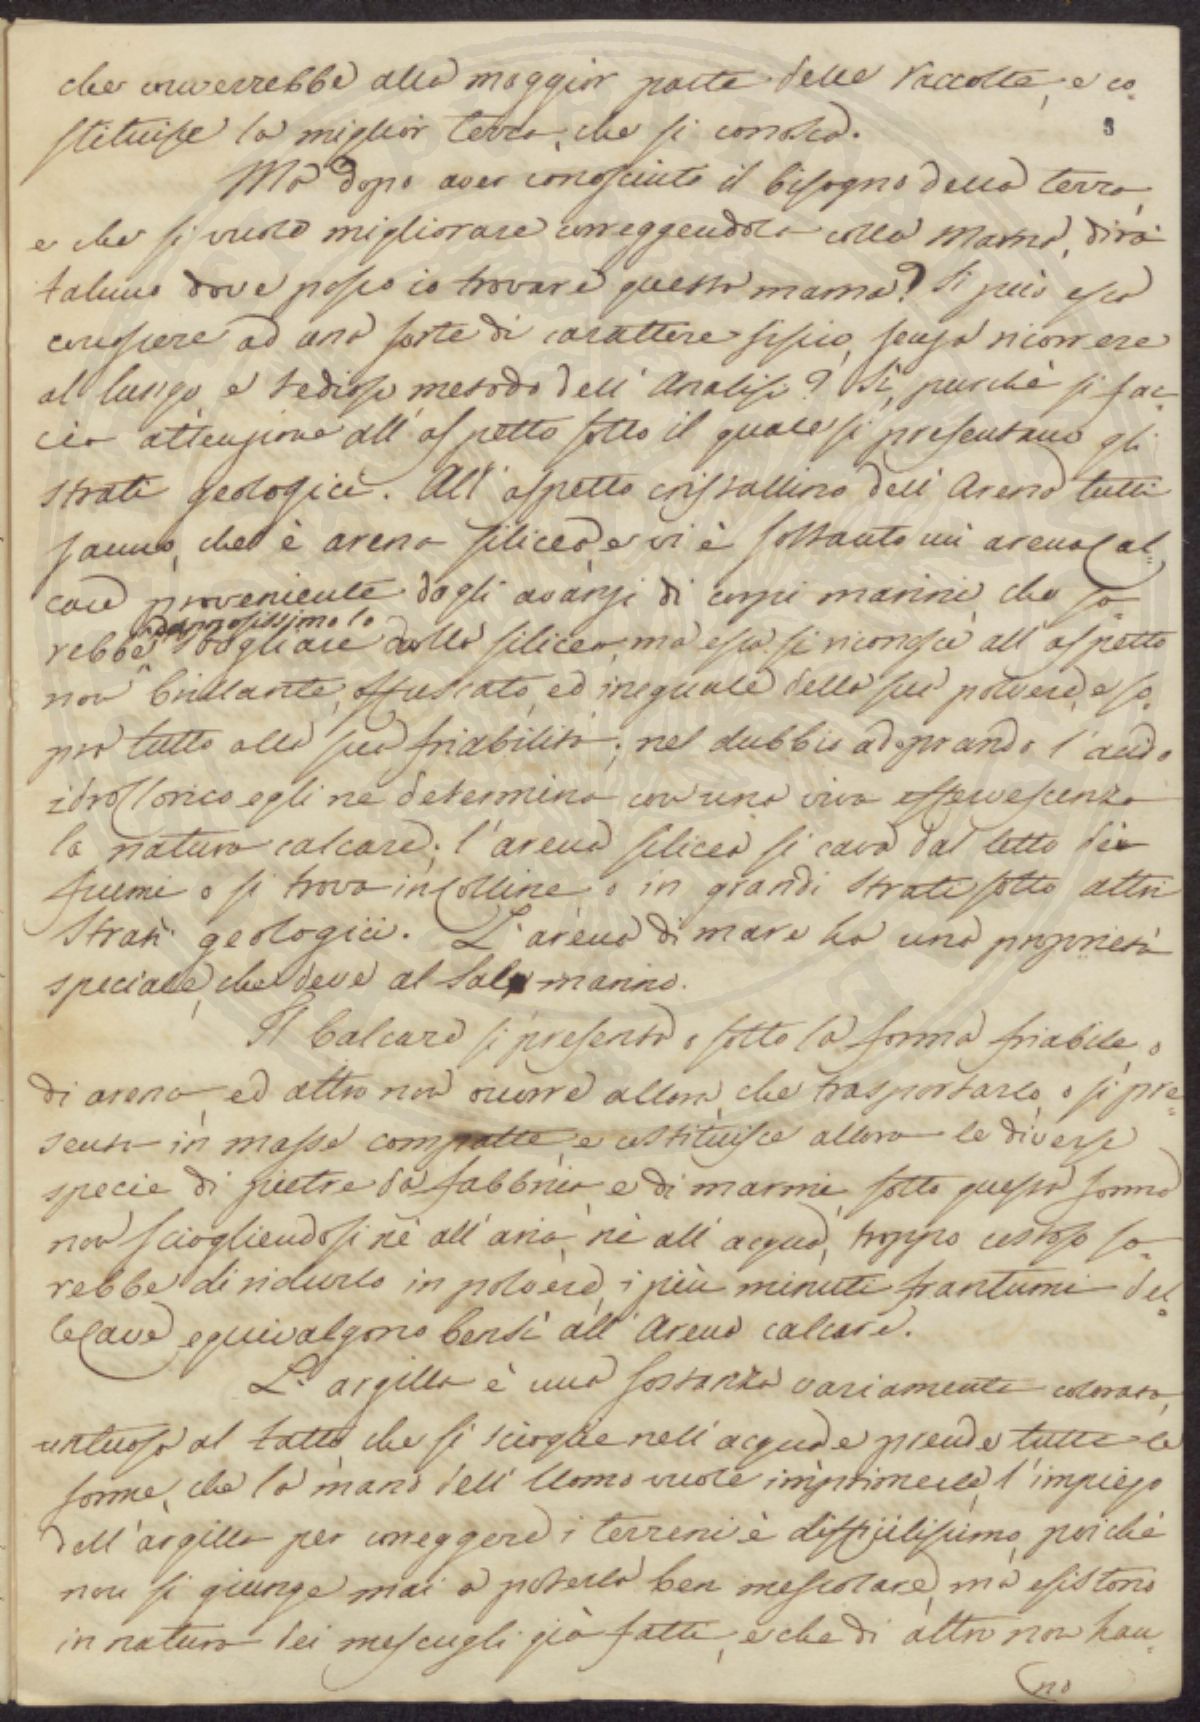 che converrebbe alla maggior parte delle raccolte, e co-
stituisce la miglior terra, che si conosca.
Ma dopo aver conosciuto il bisogno della terra,
e che si vuole migliorare correggendola colla Marna, dirà
taluno dove posso io trovare questa marna? Si può essa
conoscere ad una sorte di carattere fisico, senza ricorrere
al lungo e tedioso metodo dell'Analisi? Sì, purchè si fac-
cia attenzione all'aspetto sotto il quale si presentano gli
strati geologici. All'aspetto cristallino dell'Arena tutti
sanno, che è arena silicea, e vi è soltanto un'arena cal-
care proveniente dagli avanzi di corpi marini, che sa-
dannosissimo lo
rebbe sbagliare dalla silicea, ma essa si riconosce all'aspetto
non brillante, offuscato, ed ineguale della sua polvere, e so-
pra tutto alla sua friabilità; nel dubbio adoprando l'acido
idroclorico egli ne determina con una viva effervescenza
la natura calcare; l'arena silicea si cava dal letto dei
fiumi o si trova in Colline o in grandi strati sotto altri
Strati geologici. L'arena di mare ha una proprietà
speciale, che deve al Sal marino.
Il Calcare si presenta o sotto la forma friabile, o
di arena, ed altro non occorre allora, che trasportarlo, o si pre-
senta in masse compatte, e costituisce allora le diverse
specie di pietre da fabbrica e di marmi, sotto questa forma
non sciogliendosi nè all'aria, nè all'acqua, troppo costoso sa-
rebbe di ridurlo in polvere, i più minuti frantumi del-
le Cave equivalgono bensì all'Arena calcare.
L'argilla è una sostanza variamente colorata,
untuosa al tatto, che si scioglie nell'acqua e prende tutte le
forme, che la mano dell'Uomo vuole imprimerle, l'impiego
dell'argilla per correggere i terreni è difficilissimo, poichè
non si giunge mai a poterla ben mescolare, ma esistono
in natura dei mescugli già fatti, e che di altro non han-
no